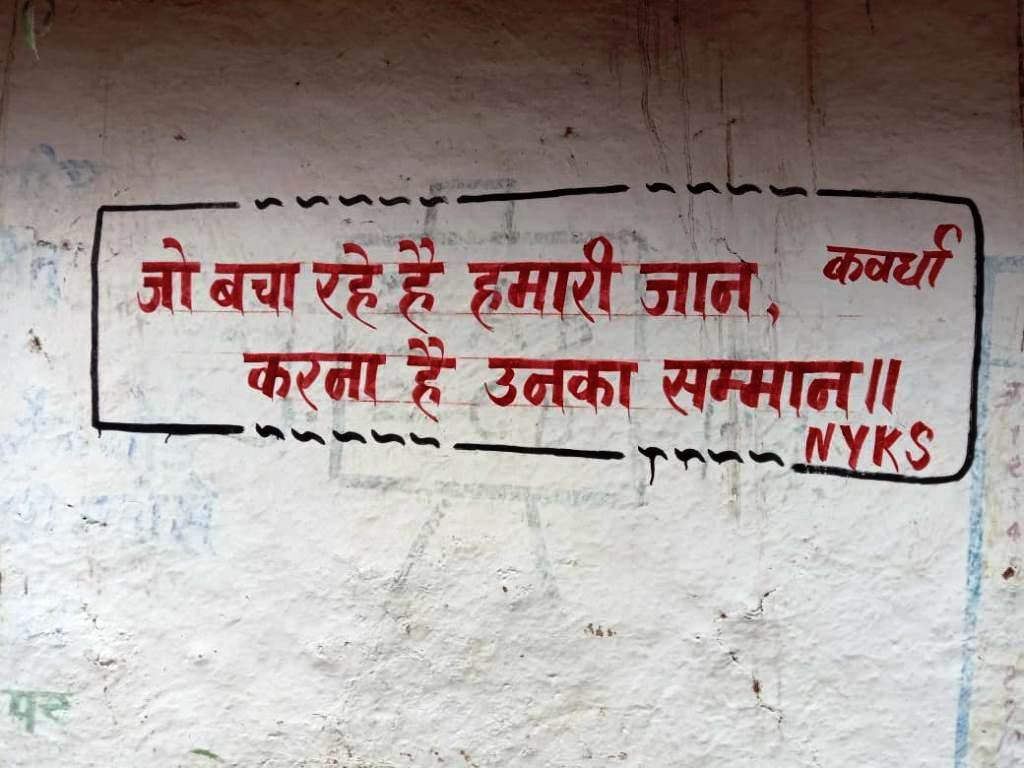 जो बचा रहे है हमारी जान, कवर्धा
करना है उनका सम्मान॥
NYKS
पर